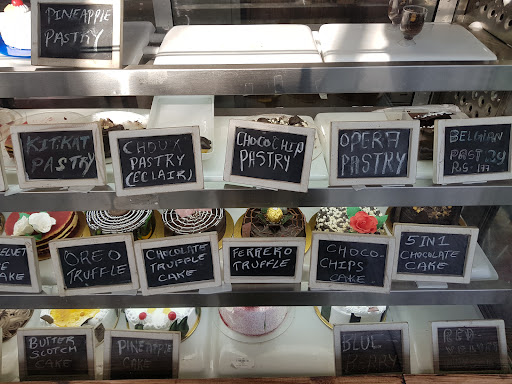 PINEAPPLE
PASTRY
KITKAT
PASTRY
CHOUX
PASTRY
(ECLAIR)
CHOCOCHIP
PASTRY
OPERA
PASTRY
BELGIAN
RS-177
VELVET
CAKE
OREO
TRUFFLE
CHOCOLATE
TRUFFLE
CAKE
FERRERO
TRUFFLE
CHOCO-
CHIPS
CAKE
5 IN 1
CHOCOLATE
CAKE
BUTTER
SCOTCH
PINEAPPLE
CAKE
BLUE
RED